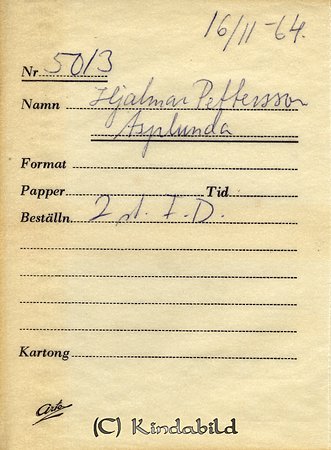 16/11-64.
Nr 5013
Namn Hjalmar Pettersson
Asplunda
Format
Papper Tid
Beställn. 2 st. F.D.
Kartong
Arle
(C) Kindabild